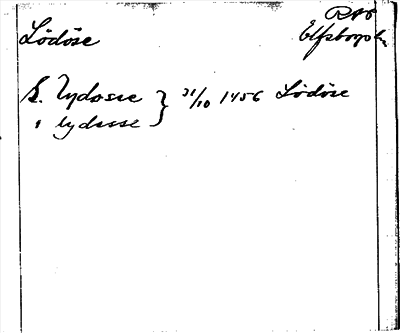 Lödöse
Elfsborgs l.
S. Lydosse } 31/10 1456 Lödöse
i lydosse